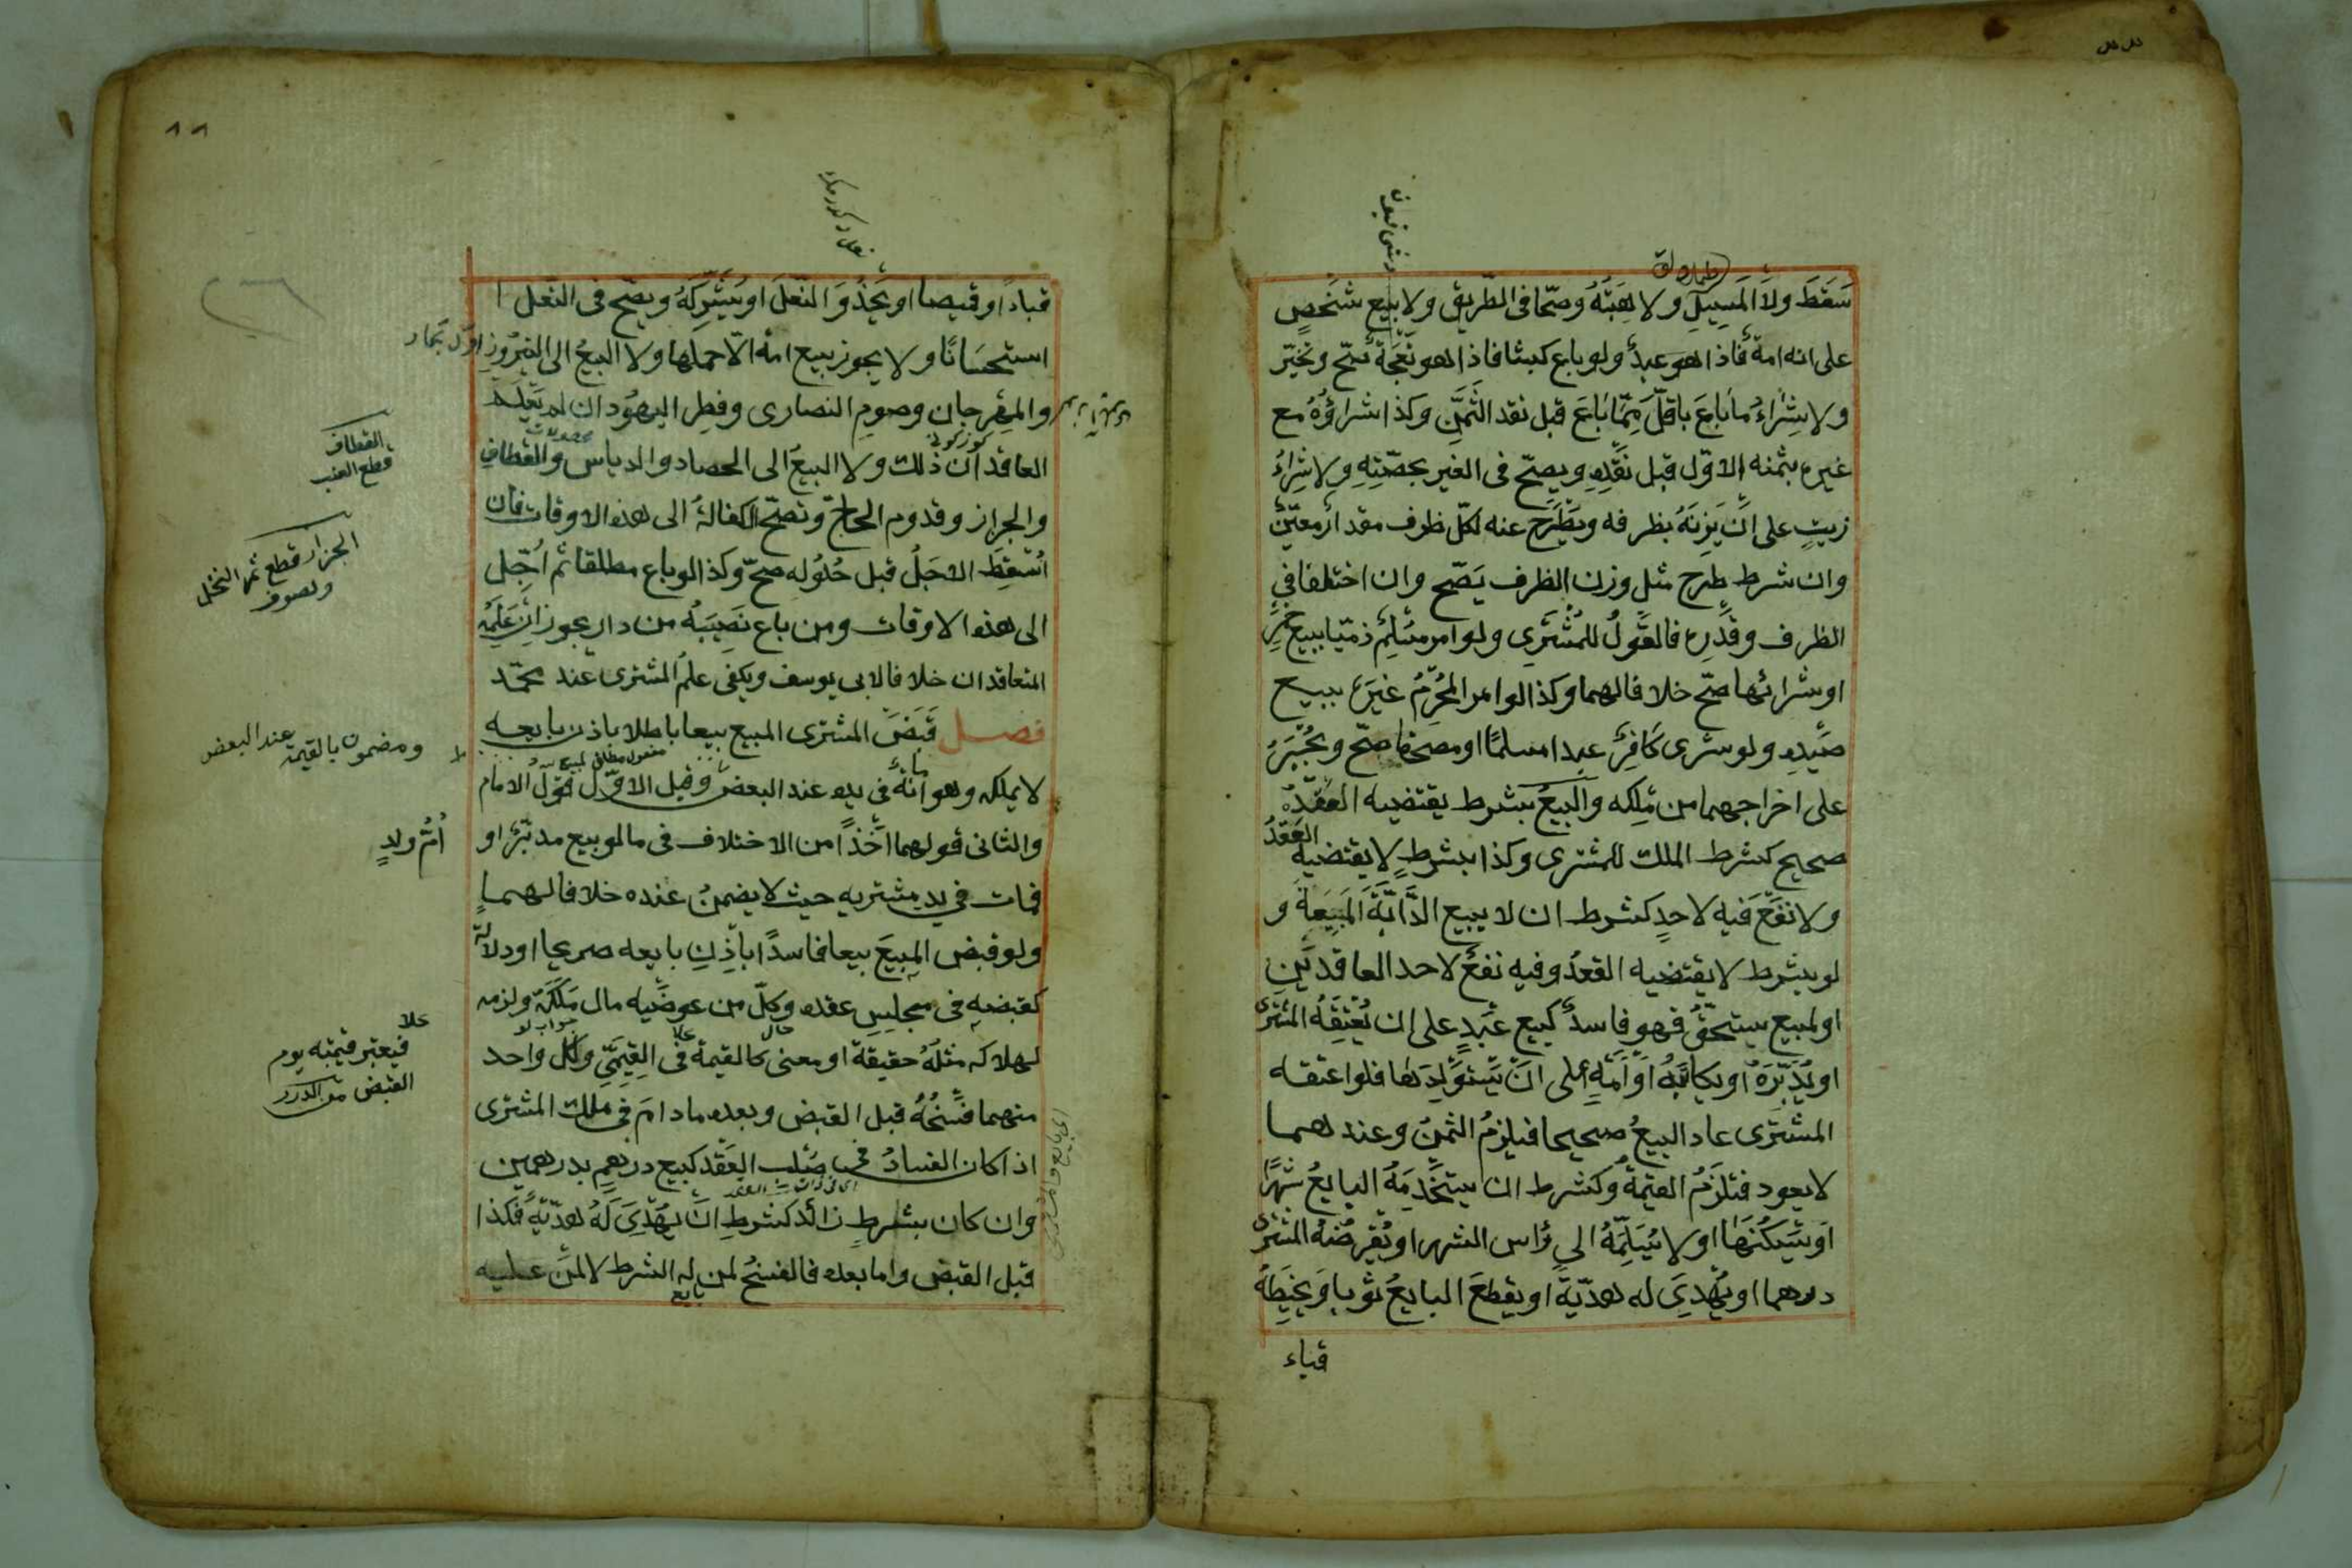 سَقَطَ ولا المَسِيلِ ولا هِبَتُهُ وصحّا فى الطّريق ولا بيع شَخْصٍ
على انه امة فاذا هو عبد ولو باع كبشا فاذا هو نَعْجَة صحّ وتخيّر
ولا شِرَاءُ ما باعَ باقلّ مِمّا باعَ قبل نقد الثَّمَنِ وكذا شراؤُهُ مع
غيره بثمنه الاوّل قبل نَقْدِهِ ويصحّ فى الغير بحصّتِهِ ولا شِرَاءُ
زيتٍ على ان يَزِنَهُ بظرفه ويَطْرَح عنه لكلّ ظرف مقدارٌ معيّنٌ
وان شرط طرح مثل وزن الظرف يَصّح وان اختلفا فى
الظرف وقَدرِه فالقَولُ للمُشْتَرِى ولو امر مُسْلِمٌ ذمّيّا ببيع خمرٍ
او شرائها صحّ خلافا لهما وكذا لو امر المُحْرِمُ غيرَه ببيع
صَيْدِهِ ولو شرى كَافِرٌ عبدا مسلمًا او مصحفا صحّ ويُجْبَرُ
على اخراجهما من مِلكه والبيعُ بشرط يقتضيه العَقْدُ
صحيح كشرط الملك للمشترى وكذا بشرطٍ لا يقتضيه العَقدُ
ولا نَفعَ فيه لاحدٍ كشرط ان لا يبيع الدَّابَّةَ المَبِيعة و
لو بشرط لا يقتضيه العقدُ وفيه نفعٌ لاحد العاقدَينِ
او لمبيع يستحقُّ فهو فاسدٌ كبيع عَبْدٍ على ان يُعْتِقَهُ المشترى
او يُدَبِّرَهُ او يكاتِبَهُ او أَمَةٍ على ان يَستَولِدَها فلو اعتقه
المشتَرِى عاد البيعُ صحيحا فيلزمُ الثمنُ وعندهما
لا يعود فتلزَمُ القيمة وكشرط ان يستخْدِمَهُ البايعُ شَهْرًا
او يَسْكُنَهَا او لا يُسَلِّمَهُ الى رَأس الشهر او يُقْرِضَهُ المشترى
درهما او يُهْدِىَ له هدّيّةً او يقطعَ البايعُ ثوبا ويَخِيْطَهُ
قباء
قباءً او قميصا او يَحْذُوَ النّعلَ او يُشَرِّكَهُ ويصحّ فى النّعل
استحسَانًا ولا يجوز بيع امة الّا حملها ولا البيعُ الى النيرُوزِ
والمِهرجان وصومِ النصارى وفطر اليهُود ان لم يَعْلَم
العاقدان ذلك ولا البيعُ الى الحصاد والدياس والقطافِ
والجزاز وقدوم الحاجّ وتصّح الكفالةُ الى هذه الاوقات فان
اُسْقِطَ الاجَلُ قبل حُلُوْلِه صحّ وكذا لو باع مطلقا ثم اُجّل
الى هذه الاوقات ومن باع نَصِيبَهُ من دار يجوز ان عَلِمَه
المتعاقدان خلافا لابى يوسف ويكفى علمُ المشترى عند محمّد
فصل قَبَضَ المشترى المبيع بيعا باطلا باذن بايعه
لا يملكه وهو امانةٌ فى يده عند البعض وقيل الاوّل قولُ الامام
والثانى قولهما اَخْذًا من الاختلاف فى ما لو بيع مدبّرٌ او
فمات فى يد مشتريه حيث لا يضمنُ عنده خلافا لهما
ولو قبض المبيعَ بيعا فاسدًا باذنِ بايعه صريحا او دلالة
كقبضه فى مجلِسِ عقده وكلّ من عوضَيه مال مَلَكَهُ ولزمه
لهلاكه مثلُهُ حقيقة او معنى كالقيمة فى القِيَمِّى ولكل واحد
منهما فَسْخُهُ قبل القبض وبعده مادامَ فى ملك المشترى
اذا كان الفسادُ فى صُلب العَقد كبيع درهمٍ بدرهمين
وان كان بشرطٍ زائد كشرطِ ان يهْدِىَ لَهُ هدّيّةً فكذا
قبل القبض واما بعده فالفسخُ لمن له الشرط لا لمَن عليه
القطاف
قطع العنب
الجزاز قطع ثمر النخل
وصوف
ومضمون بالقيمة عند البعض
اُمُّ ولدٍ
فيعتبر قيمته يوم
القبض من الدرر